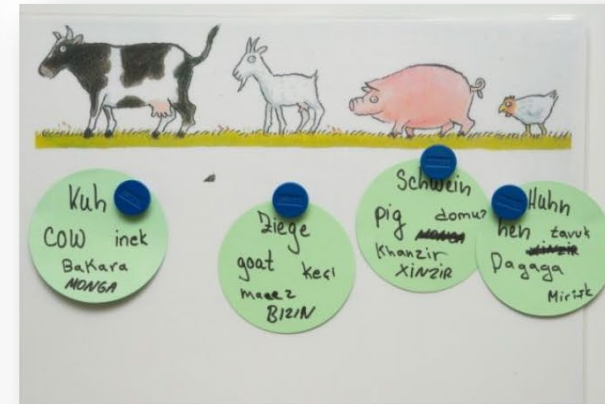 Kuh
COW inek
Bakara
MONGA
Ziege
goat keçi
maeez
BIZIN
Schwein
pig domuz
Khanzir
XINZIR
Huhn
hen tavuk
Dagaga
Mirisk